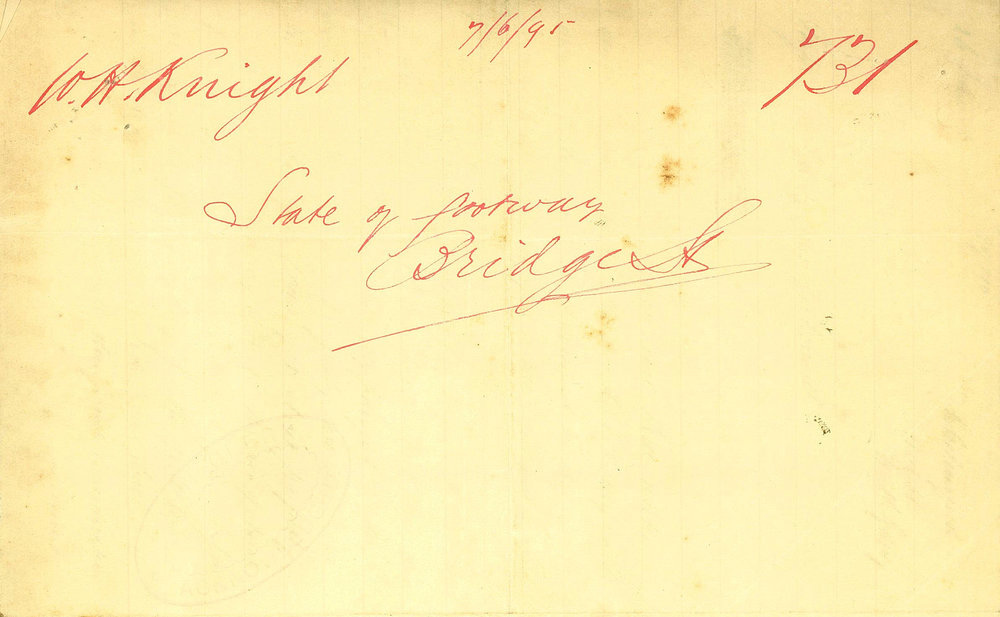 7/6/95
W. H. Knight
731
State of footway
Bridge St